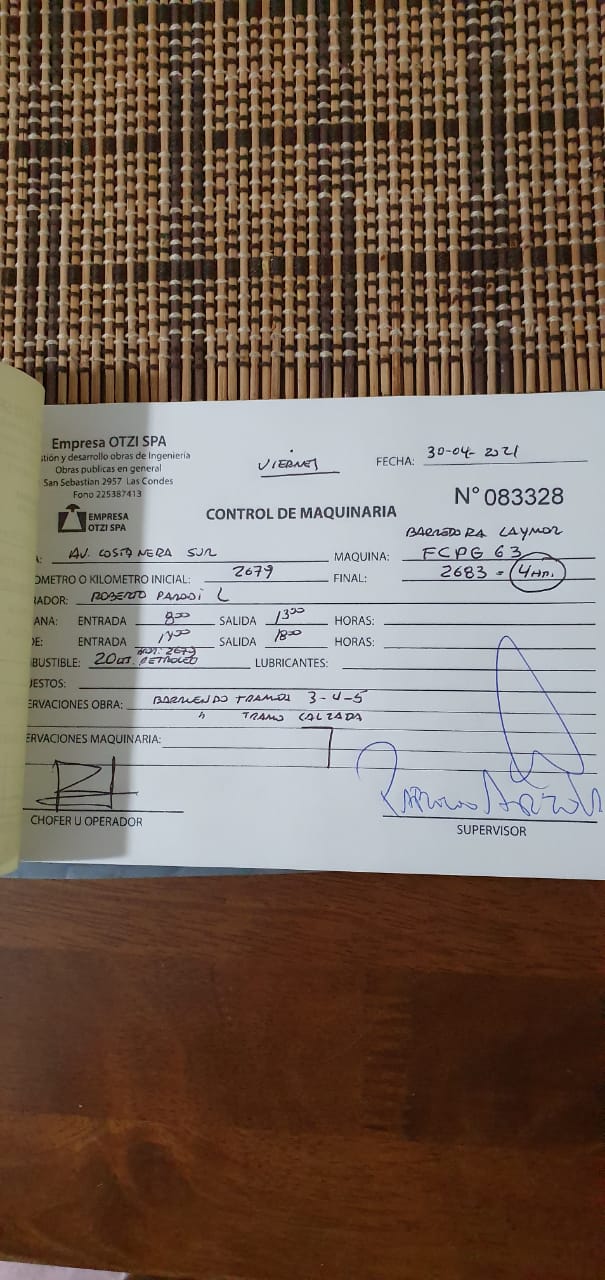 Empresa OTZI SPA
stión y desarrollo obras de Ingeniería
Obras publicas en general
San Sebastian 2957 Las Condes
Fono 225387413
EMPRESA
OTZI SPA
VIERNES
FECHA: 30-04-2021
N° 083328
CONTROL DE MAQUINARIA
BARREDORA LAYMOR
A: AV. COSTANERA SUR MAQUINA: FCPG 63
OMETRO O KILOMETRO INICIAL: 2679 FINAL: 2683 = 4 HR.
RADOR: ROBERTO PARODI L
ANA: ENTRADA 8:00 SALIDA 13:00 HORAS:
DE: ENTRADA 14:00 SALIDA 18:00 HORAS:
HOR: 2679
BUSTIBLE: 20 LT. PETROLEO LUBRICANTES:
UESTOS:
ERVACIONES OBRA: BARRIENDO TRAMOS 3-4-5
" TRAMO CALZADA
ERVACIONES MAQUINARIA:
CHOFER U OPERADOR
SUPERVISOR